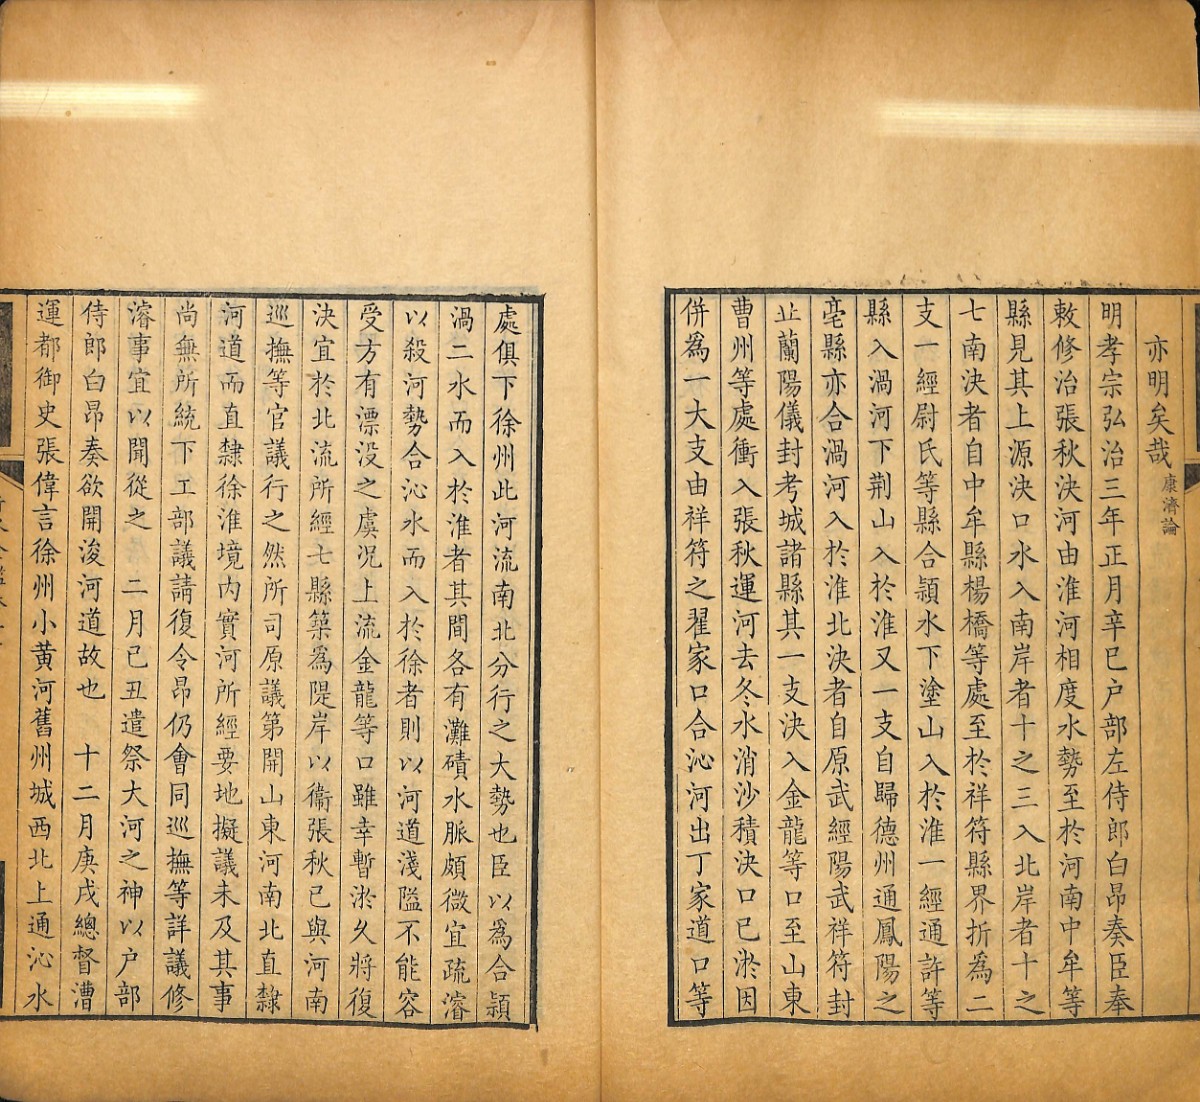 亦明矣哉康濟論
明孝宗弘治三年正月辛巳户部左侍郎白昂奏臣奉
敕修治張秋決河由淮河相度水勢至於河南中牟等
縣見其上源決口水入南岸者十之三入北岸者十之
七南決者自中牟縣楊橋等處至於祥符縣界折為二
支一經尉氏等縣合潁水下塗山入於淮一經通許等
縣入渦河下荆山入於淮又一支自歸德州通鳳陽之
亳縣亦合渦河入於淮北決者自原武經陽武祥符封
丘蘭陽儀封考城諸縣其一支決入金龍等口至山東
曹州等處衝入張秋運河去冬水消沙積決口已淤因
併為一大支由祥符之翟家口合沁河出丁家道口等
處俱下徐州此河流南北分行之大勢也臣以為合潁
渦二水而入於淮者其間各有灘磧水脈頗微宜疏濬
以殺河勢合沁水而入於徐者則以河道淺隘不能容
受方有漂没之虞況上流金龍等口雖幸暫淤久將復
決宜於北流所經七縣築為隄岸以衞張秋已與河南
巡撫等官議行之然所司原議第開山東河南北直隸
河道而直隸徐淮境内實河所經要地擬議未及其事
尚無所統下工部議請復令昂仍會同巡撫等詳議修
濬事宜以開從之 二月己丑遣祭大河之神以户部
侍郎白昂奏欲開浚河道故也 十二月庚戌總督漕
運都御史張偉言徐州小黄河舊州城西北上通沁水